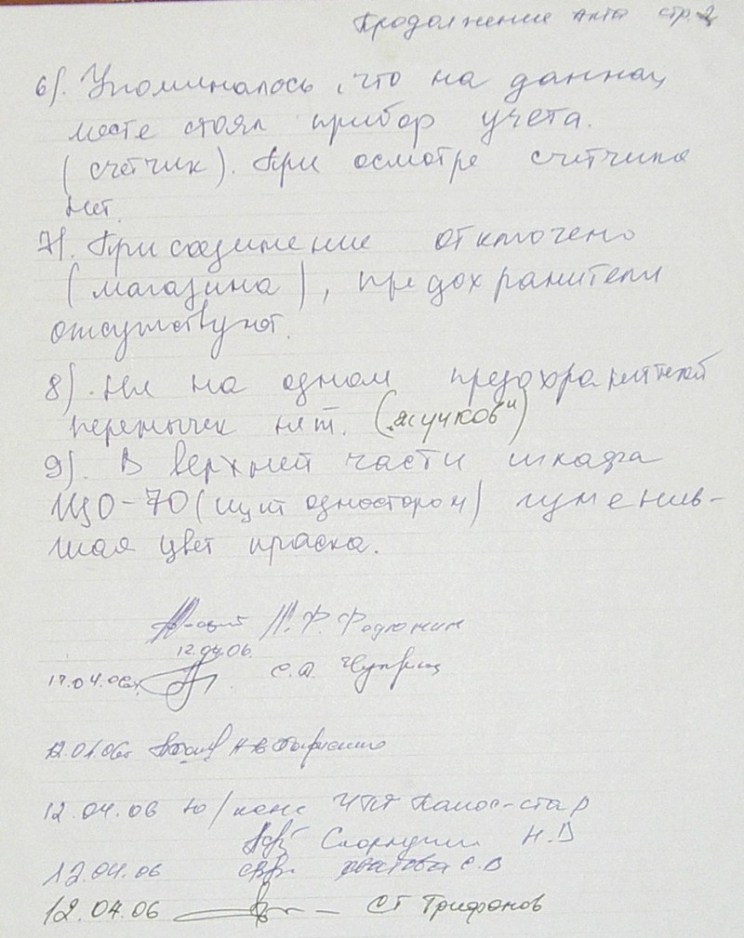 Продолжение акта стр. 2
6). Упоминалось, что на данном
месте стоял прибор учета.
(счетчик). При осмотре счетчика
нет.
7). Присоединение отключено
(магазина), предохранители
отсутствуют.
8). Ни на одном предохранителей
перемычек нет. („жучков")
9). В верхней части шкафа
ЩО-70 (щит односторон)
шая цвет краска.
12.04.06.
12.04.06г. С.А.
12.04.06
12.04.06 ю/конс ЧПКФ
Н.В
12.04.06 С.В
12.04.06 СГ Трифонов